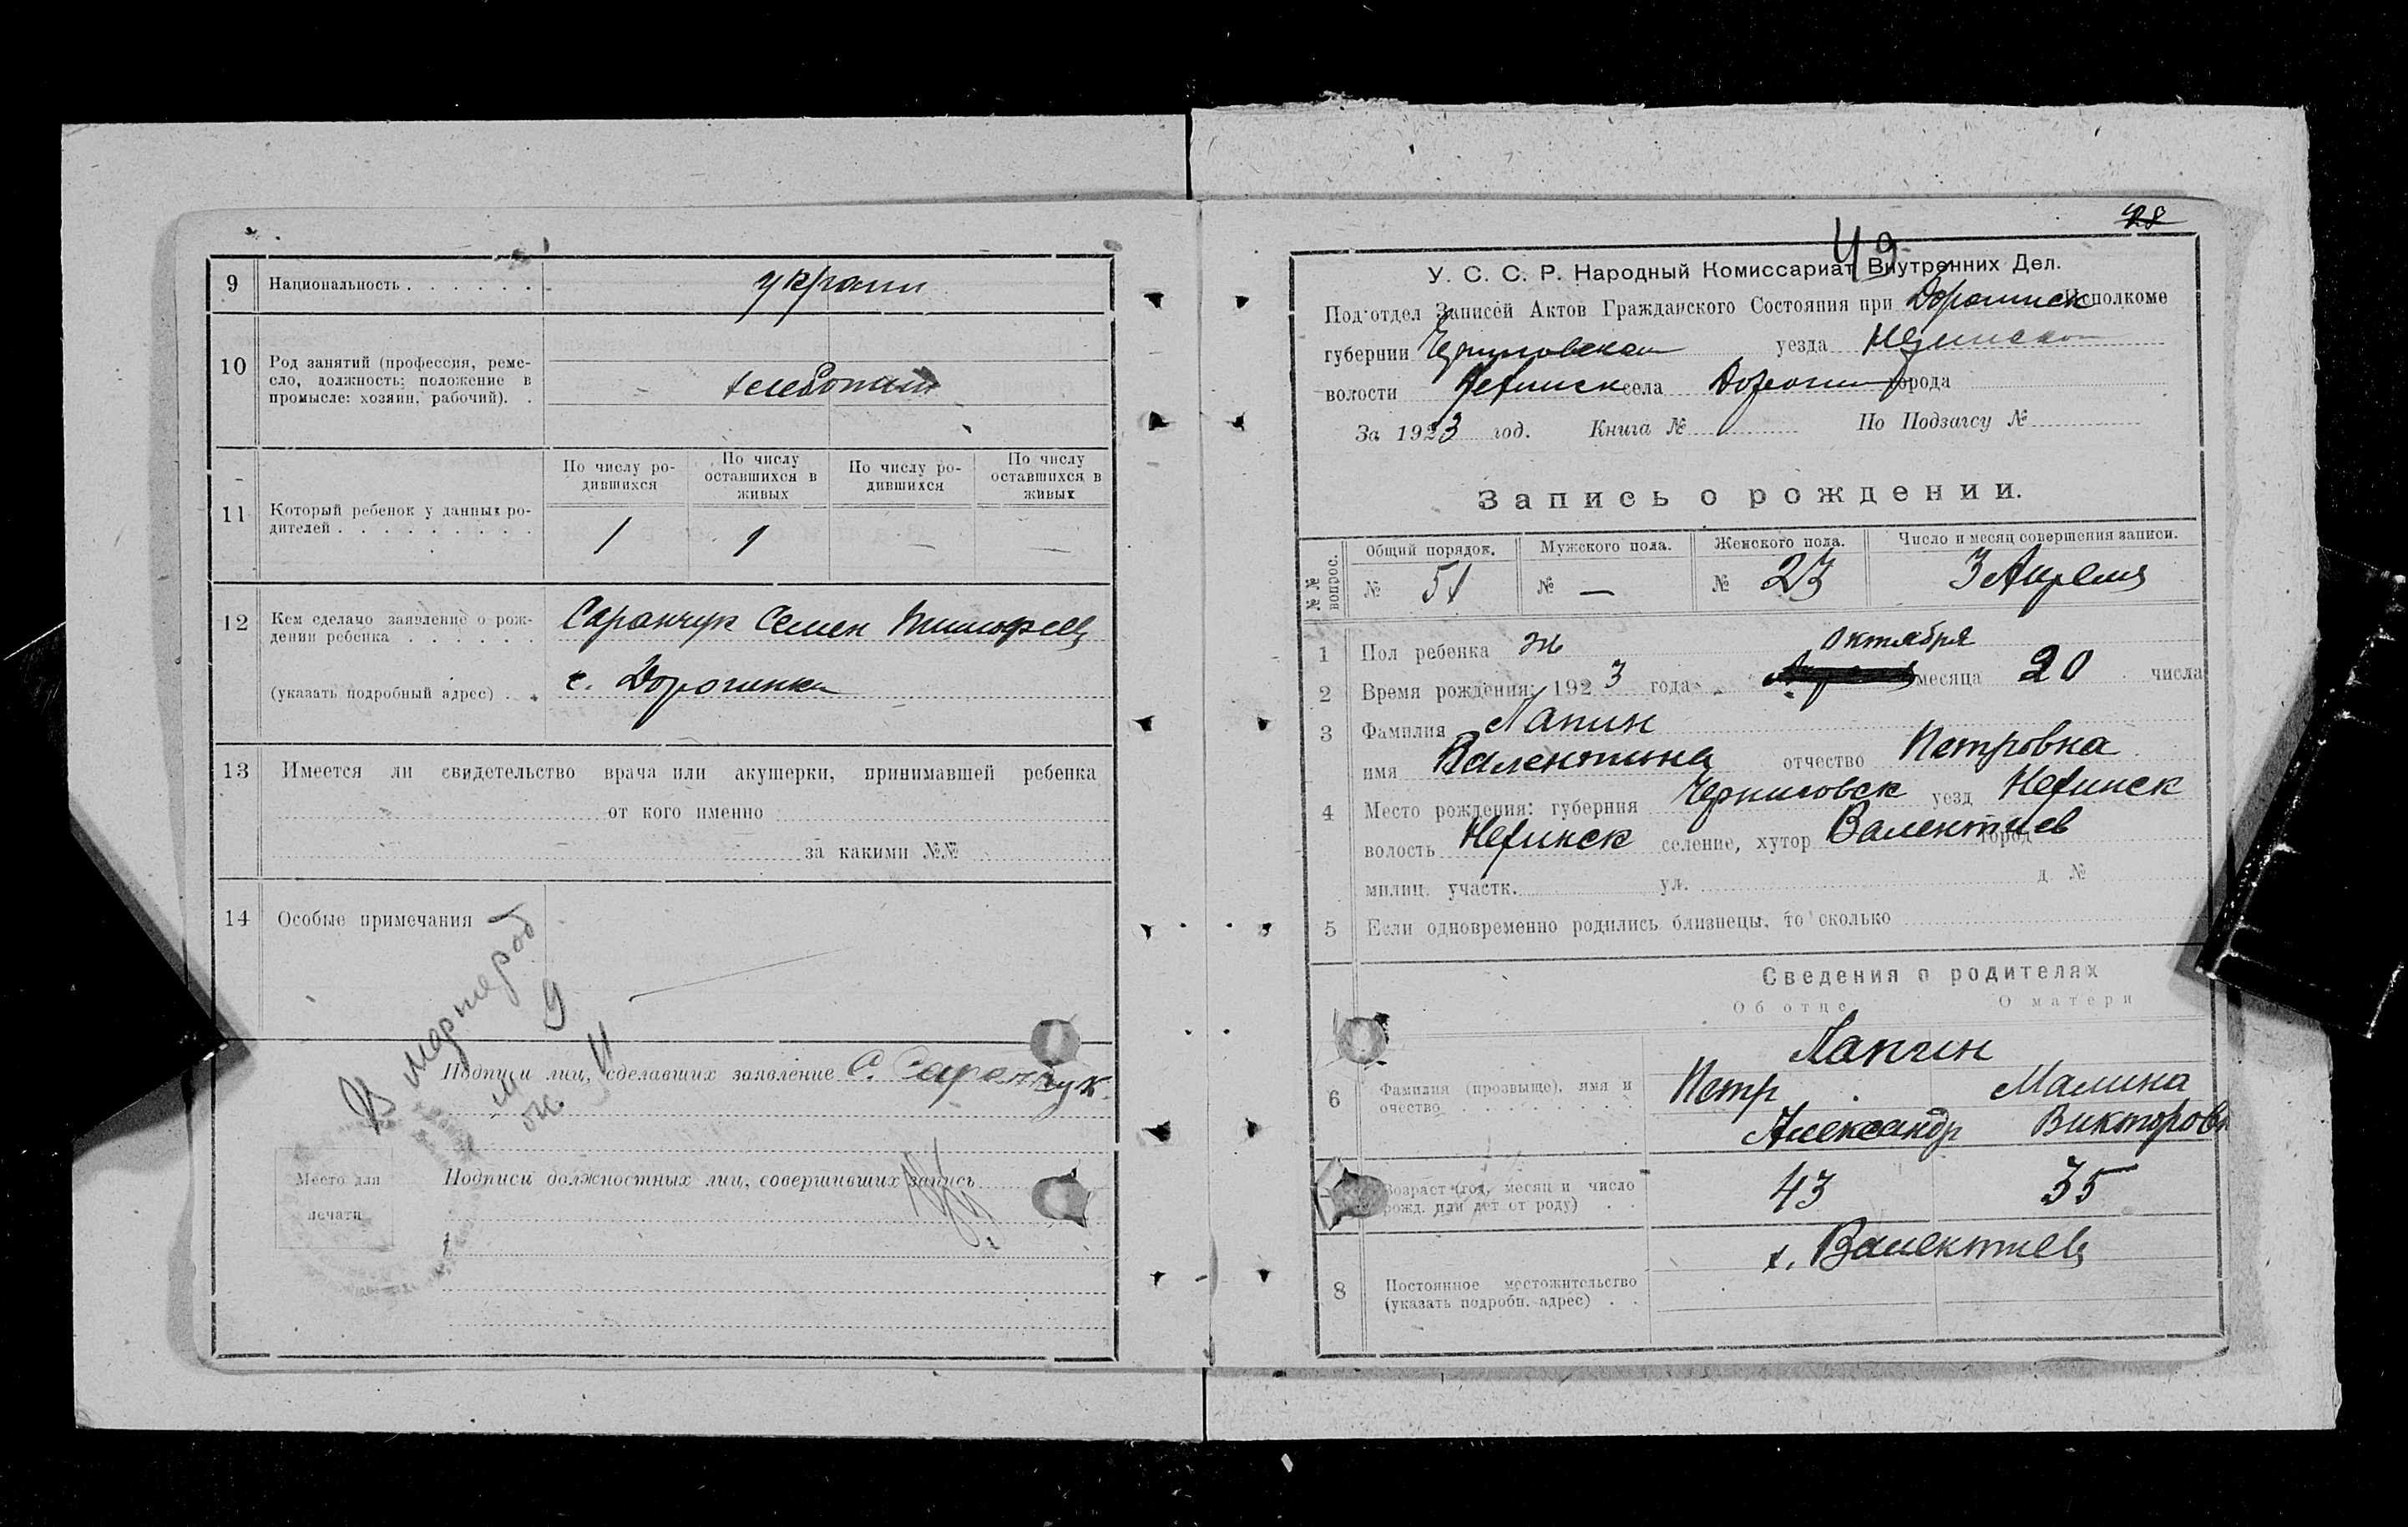 9 Национальность . . . . . . . украин
10 Род занятий (профессия, реме-
сло, должность; положение в
промысле: хозяин, рабочий). . хлебопаш
11 Который ребенок у данных ро-
дителей . . . . . . . . .
По числу ро-
дившихся
По числу
оставшихся в
живых
По числу ро-
дившихся
По числу
оставшихся в
живых
1 1 — —
12 Кем сделано заявление о рож-
дении ребенка . . . . . . Саранчук Семен Тимофеев
(указать подробный адрес) . . с. Дорогинка
13 Имеется ли свидетельство врача или акушерки, принимавшей ребенка
от кого именно
за какими №№
14 Особые примечания
В
м 9
ж 4
Подписи лиц, сделавших заявление С. Саранчук.
Место для
печати
Подписи должностных лиц, совершивших запись
28
49
У. С. С. Р. Народный Комиссариат Внутренних Дел.
Под'отдел Записей Актов Гражданского Состояния при Дорогинск Исполкоме
губернии Черниговской уезда Нежинско
волости Нежинск села Дорогин города
За 1923 год. Книга № По Подзагсу №
Запись о рождении.
№№ вопрос.
Общий порядок. Мужского пола. Женского пола. Число и месяц совершения записи.
№ 51 № — № 23 3 Апреля
1 Пол ребенка ж
Октября
2 Время рождения: 1923 года месяца 20 числа
3 Фамилия Лапин
имя Валентина отчество Петровна
4 Место рождения: губерния Черниговск уезд Нежинск
волость Нежинск селение, хутор Валентиев город
милиц. участк. ул. д. №
5 Если одновременно родились близнецы, то сколько
Сведения о родителях
Об отце О матери
Лапин
6 Фамилия (прозвище), имя и
очество . . . . . . . . .
Петр Малина
Александр Викторовн
Возраст (год, месяц и число
рожд. или лет от роду) . . 43 35
8 Постоянное местожительство
(указать подробн. адрес) . . х. Валентиев